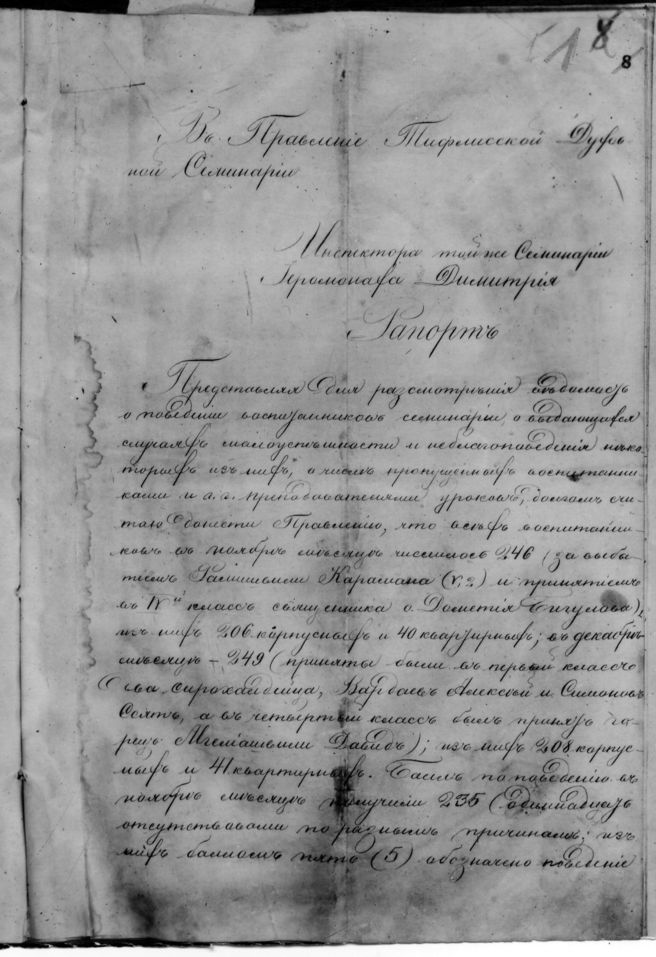 8
8
Въ Правленіе Тифлисской Духов
ной Семинаріи
Инспектора той же Семинаріи
Іеромонаха Димитрія
Рапортъ
Представляя для разсмотрѣнія вѣдомость
о поведеніи воспитанниковъ семинаріи, о выдающихся
случаяхъ малоуспѣшности и неблагоповеденія нѣко
торыхъ изъ нихъ, о числѣ пропущенныхъ воспитанни
ками и г. г. преподавателями уроковъ, долгомъ счи
таю донести Правленію, что всѣхъ воспитанни
ковъ въ ноябрѣ мѣсяцѣ числилось 246 (за выбы
тіемъ Карамана (V, 2) и принятіемъ
въ IV классъ священника о. Дометія
изъ нихъ 206 корпусныхъ и 40 квартирныхъ; въ декабрѣ
мѣсяцѣ – 249 (приняты были въ первый классъ
два Алексѣй и Симоновъ
а въ четвертый классъ былъ принятъ
Давидъ); изъ нихъ 208 корпус
ныхъ и 41 квартирныхъ. Баллъ по поведенію въ
ноябрѣ мѣсяцѣ получили 235 (одиннадцать
отсутствовали по разнымъ причинамъ; изъ
нихъ балломъ пять (5) обозначено поведеніе